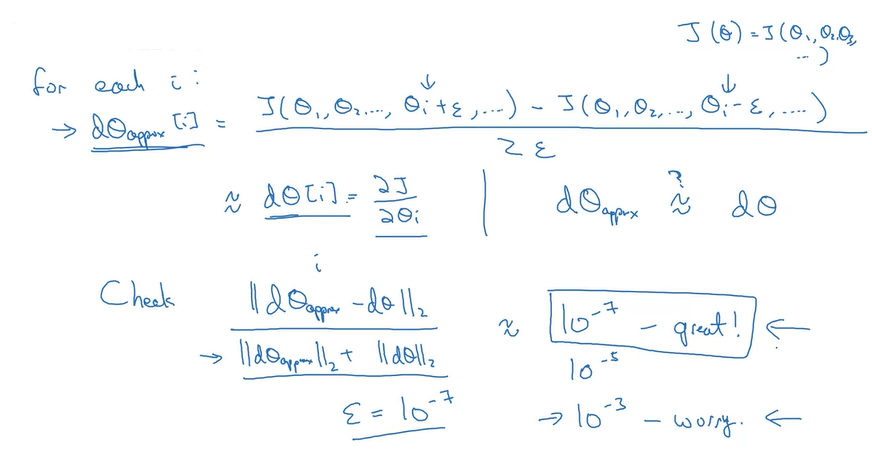 J(θ) = J(θ₁, θ₂, θ₃, ...)
for each i:
→ dθ_approx[i] = (J(θ₁, θ₂, ..., θᵢ+ε, ...) - J(θ₁, θ₂, ..., θᵢ-ε, ....)) / 2ε
≈ dθ[i] = ∂J/∂θᵢ | dθ_approx ≈? dθ
i
Check ‖dθ_approx - dθ‖₂ / (‖dθ_approx‖₂ + ‖dθ‖₂) ≈ 10⁻⁷ - great! ←
10⁻⁵
ε = 10⁻⁷ → 10⁻³ - worry. ←